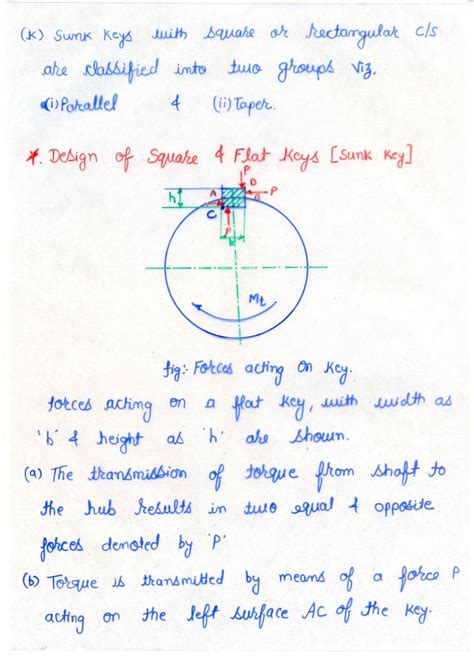 (K) Sunk Keys with square or rectangular C/S
are classified into two groups Viz,
(i) Parallel & (ii) Taper.
*. Design of Square & Flat Keys [Sunk Key]
P
D
h
A
P
B
C
P
b
Mt
fig:- Forces acting on Key.
forces acting on a flat Key, with width as
'b' & height as 'h' are shown.
(a) The transmission of torque from shaft to
the hub results in two equal & opposite
forces denoted by 'P'
(b) Torque is transmitted by means of a force P
acting on the left surface AC of the Key.